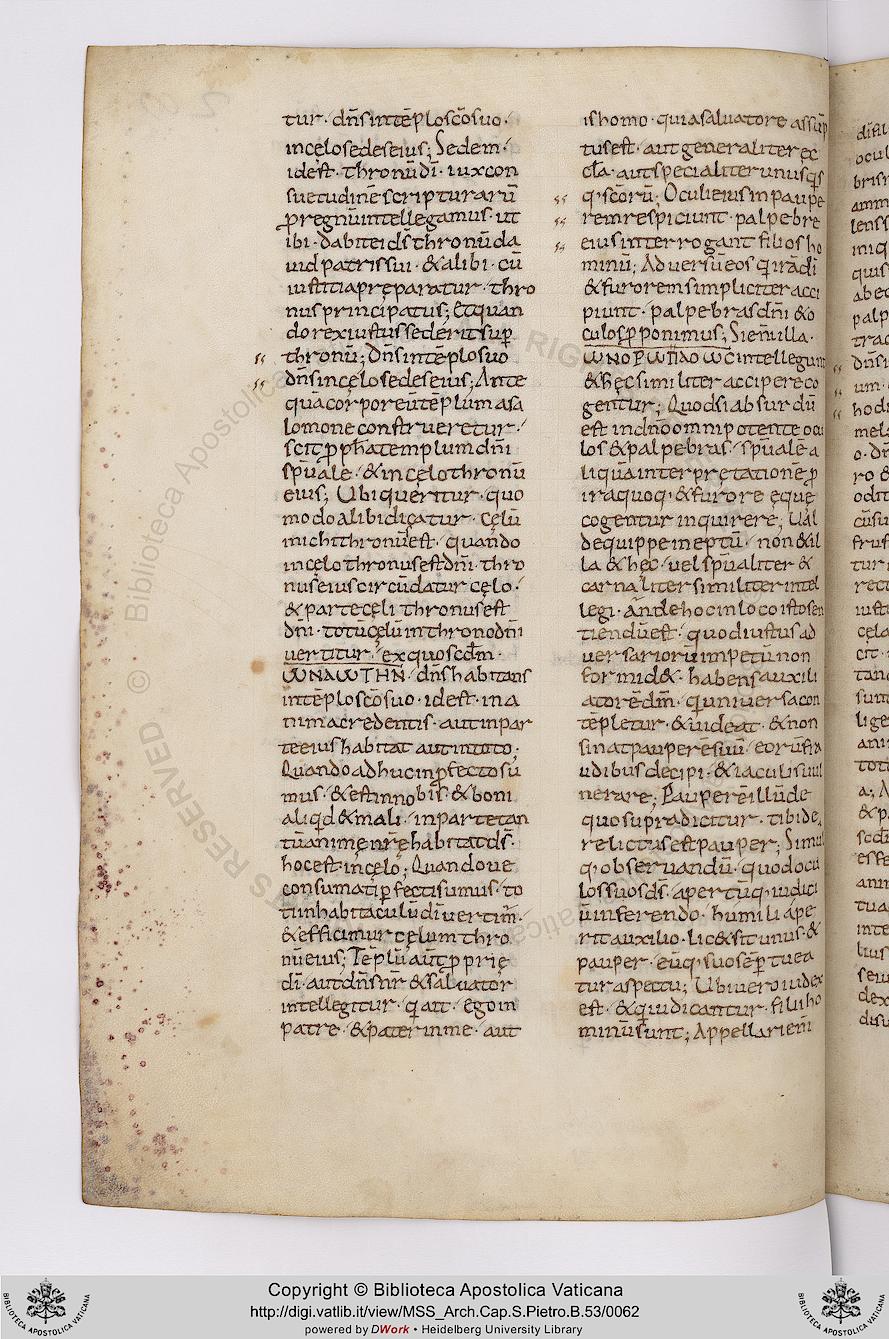 tur· dn̄s intēplo sc̄o suo·
in celo sedes eius; Sedem·
id est· thronū dī· iux con
suetudinē scripturarū
ꝓ regnū intellegamus· ut
ibi· dabit ei ds̄ thronū da
uid patris sui· & alibi· cū
iustitia pręparatur· thro
nus principatus; Et quan
do rex iustus sederit suꝑ
thronū; Dn̄s intēplo suo
dn̄s in celo sedes eius; Ante
quā corporeū tēplum a sa
lomone construeretur·
scit ꝓph̄a templum dn̄i
sp̄uale· & in celo thronū
eius; Ubi queritur· quo
modo alibi dicatur· Celū
michi thronū est· quando
in celo thronus est dn̄i· thro
nus eius circūdatur celo·
& parte celi thronus est
dn̄i· totū celū in throno dn̄i
uertitur· ex quo scd̄m·
ѠΝΑѠΤΗΝ· dn̄s habitans
intēplo sc̄o suo· id est· in a
nima credentis· aut in par
te eius habitat aut in toto·
Quando adhuc inꝑfecto su
mus· & est in nobis· & boni
aliqd & mali· in parte tan
tū animę nr̄ę habitat ds̄·
hoc est in celo; Quando ue
consumati ꝑfecti sumus· to
ti in habitaculū dī uertim̄·
& efficimur celum thro
nū eius; Tēplū aut̄ ꝓprie
dī· aut dn̄s nr̄ & saluator
intellegitur· qi ait· ego in
patre· & pater in me· aut
is homo· qui a saluatore assūp
tus est· aut generaliter ec
cl̄a· aut specialiter unusqs
q; sc̄orū; Oculi eius in paupe
rem respiciunt· palpebre
eius interrogant filios ho
minū; Aduersū eos qi irā dī
& furorem simpliciter acci
piunt· palpebras dn̄i & o
culos ꝓponimus; Si eni̅ illa·
intellegunt
& hęc similiter accipere co
gentur; Quod si absurdū
est in dn̄o omnipotente ocu
los & palpebras· sp̄uale a
liquā interpretationē ꝓ
ira quoq; & furore ęque
cogentur inquirere; Ual
de quippe ineptū· non & il
la & hęc· uel sp̄ualiter &
carnaliter similiter intel
legi· An̄ de hoc in loco isto sen
tiendū est· quod iustus ad
uersarioru impetū non
formid&· habens auxili
atorē dm̄· qi uniuersa con
tēpletur· & uideat· & non
sinat pauperē suū· eorū fra
udibus decipi· & iaculis uul
nerare; Pauperē illū de
quo supra dicitur· tibi de
relictus est pauper; Simul
q; obseruandū· quod ocu
los suos ds̄· apertūq; iudici
ū inferendo· humili ape
rit auxilio· lic& sit unus· &
pauper· eūq; suo sēꝑ tuea
tur aspectu; Ubi uero iudex
est· & qi iudicantur· filii ho
minū sunt; Appellari eni̅